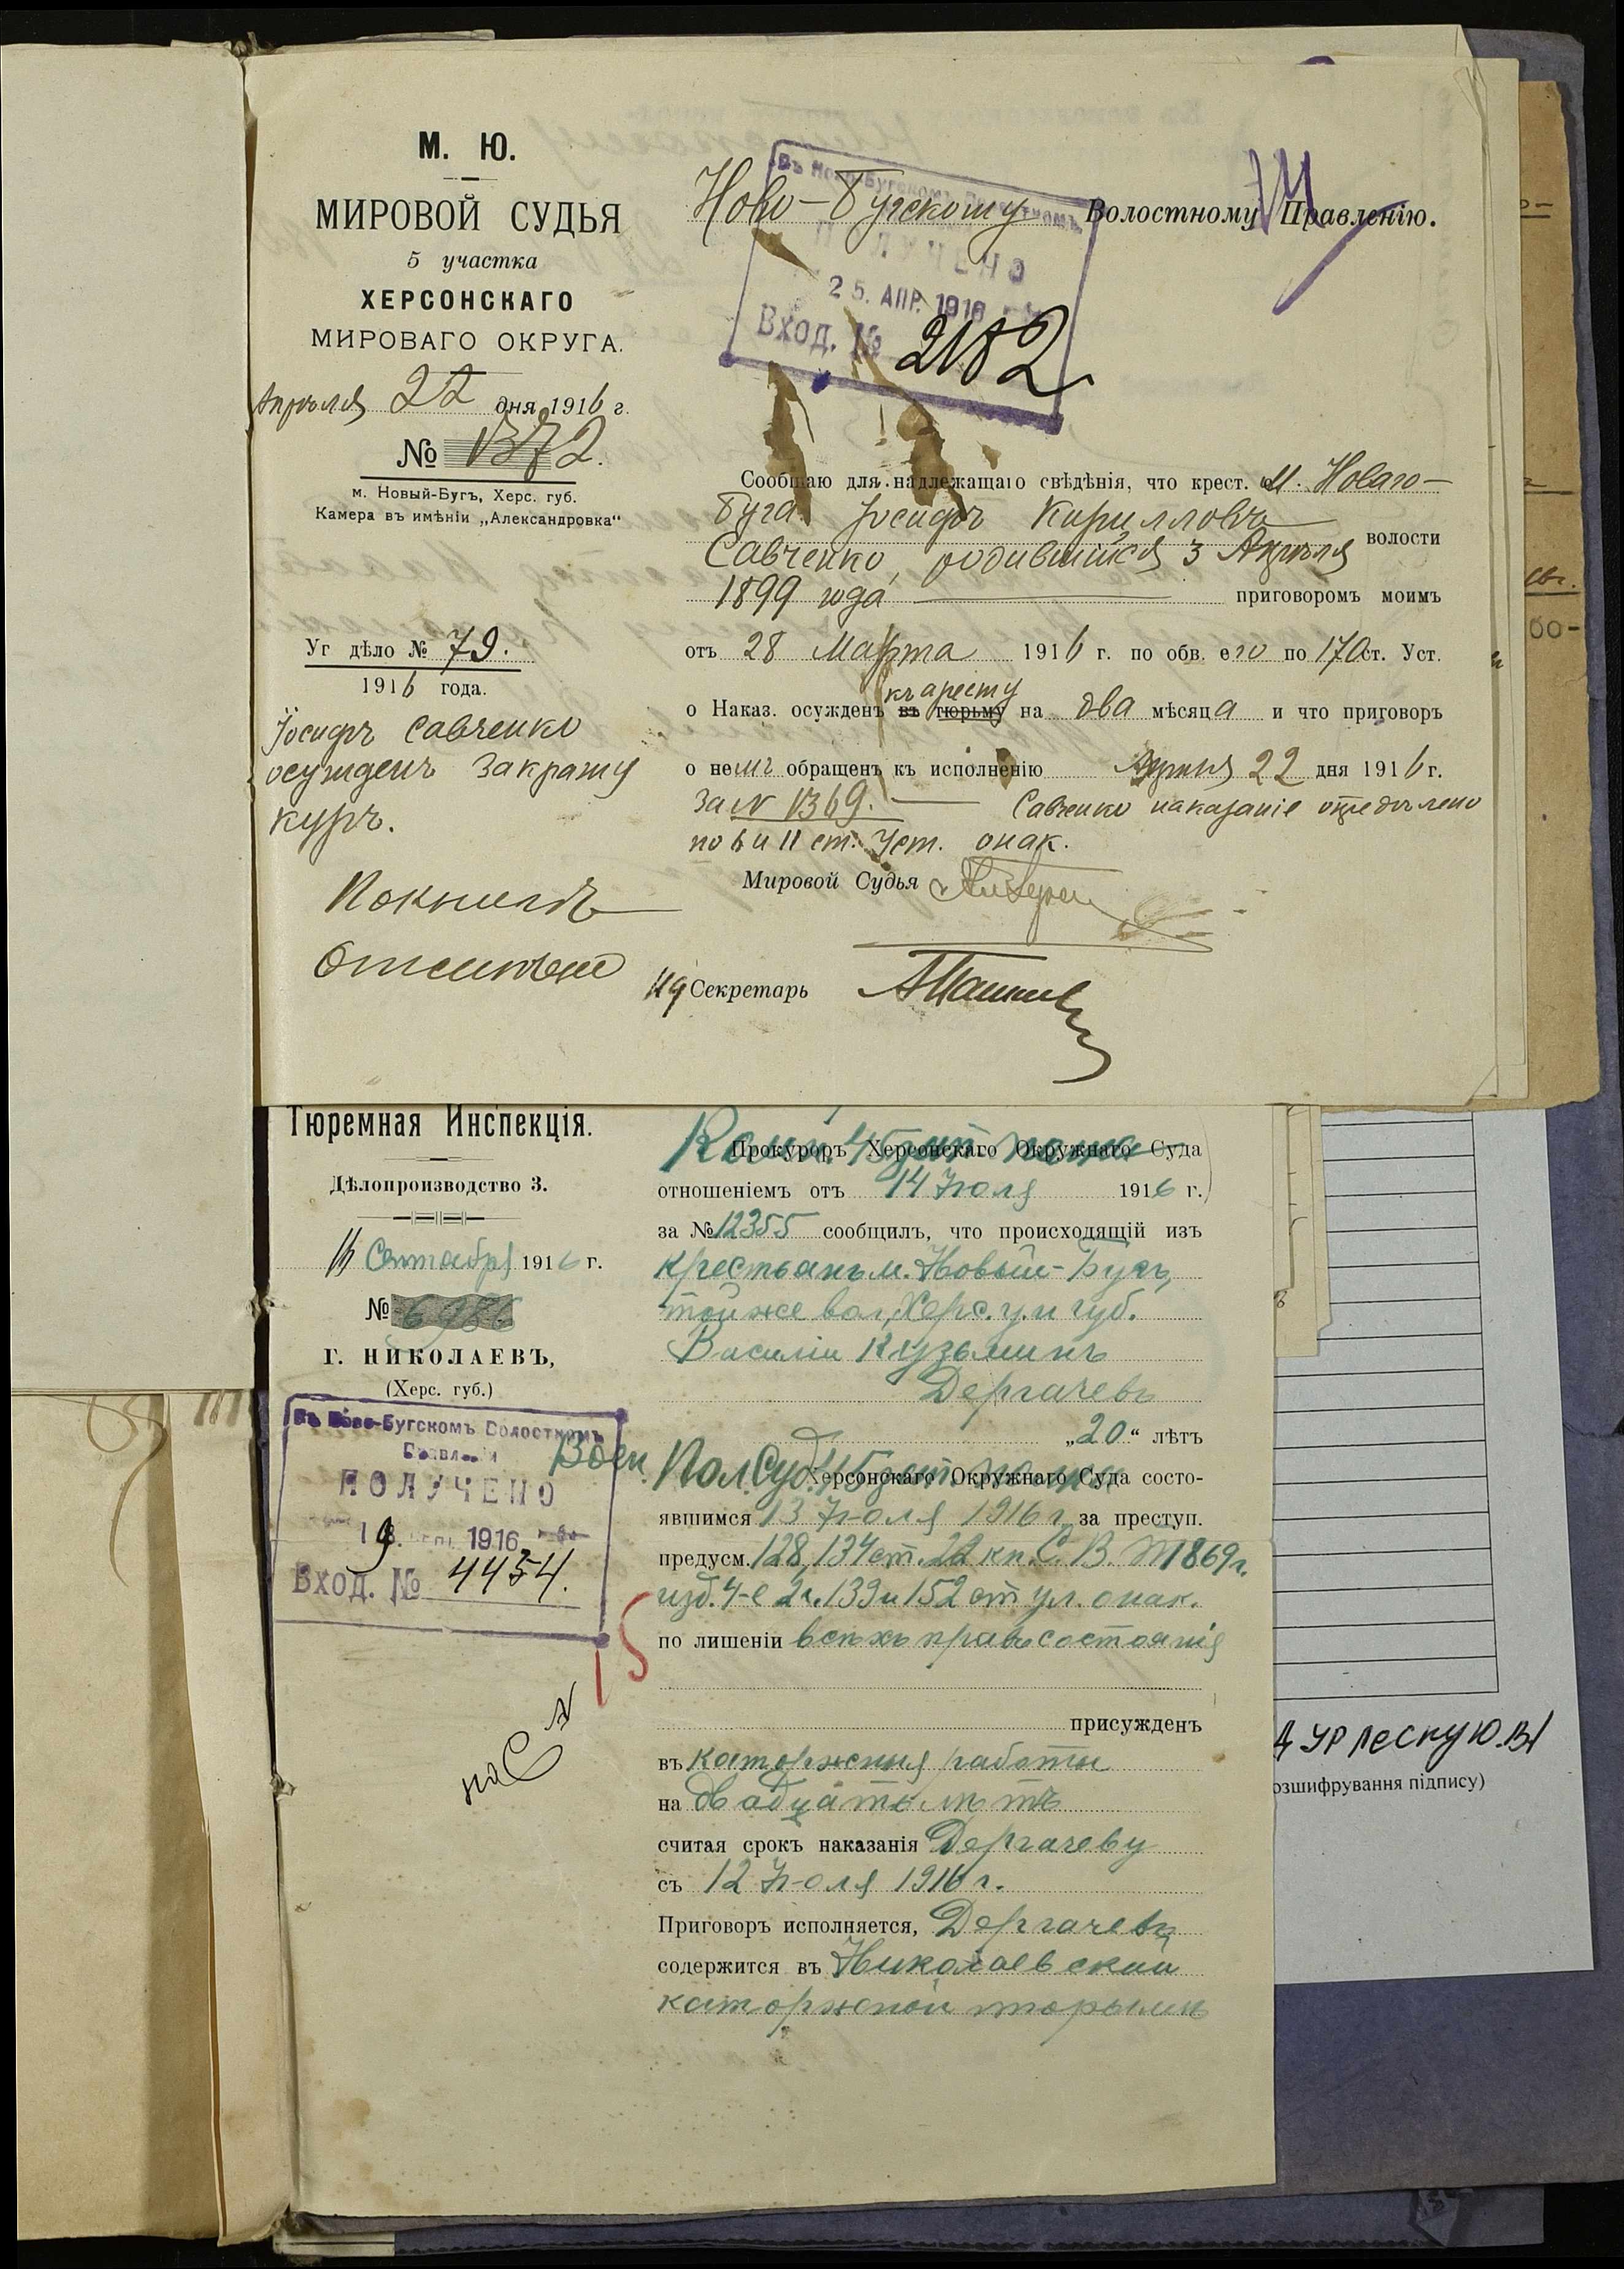 М. Ю.
МИРОВОЙ СУДЬЯ
5 участка
ХЕРСОНСКАГО
МИРОВАГО ОКРУГА.
Апрѣля 22 дня 1916 г.
№ 1372.
м. Новый-Бугъ, Херс. губ.
Камера въ имѣніи „Александровка“
Уг дѣло № 79.
1916 года.
Іосифъ Савченко
осужденъ за кражу
куръ.
Отсидѣлъ
Ново-Бугскому Волостному Правленію.
Въ Ново-Бугскомъ Волостномъ
ПОЛУЧЕНО
25. АПР. 1916
Вход. № 2182
Сообщаю для надлежащаго свѣдѣнія, что крест. м. Новаго-
Буга Іосифъ Кирилловъ
Савченко, родившійся 3 Апрѣля волости
1899 года приговоромъ моимъ
отъ 28 Марта 1916 г. по обв. его по 170 ст. Уст.
къ аресту
о Наказ. осужденъ въ тюрьму на два мѣсяца и что приговоръ
о немъ обращенъ къ исполненію Апрѣля 22 дня 1916 г.
за № 1369. Савченко наказаніе опредѣлено
по 6 и 11 ст. Уст. о нак.
Мировой Судья
Секретарь
Тюремная Инспекція.
Дѣлопроизводство 3.
Сентября 1916 г.
№ 6986
г. НИКОЛАЕВЪ,
(Херс. губ.)
Въ Ново-Бугскомъ Волостномъ
Правленіи
ПОЛУЧЕНО
19. 1916
Вход. № 4434.
15
Прокуроръ Херсонскаго Окружнаго Суда
отношеніемъ отъ 14 Іюля 1916 г.
за № 12355 сообщилъ, что происходящій изъ
крестьянъ м. Новый-Бугъ,
той же вол, Херс. у. и губ.
Василій Кузьминъ
Дергачевъ
„20“ лѣтъ
Воен. Пол. Суд.
Херсонскаго Окружнаго Суда состо-
явшимся 13 Іюля 1916 г. за преступ.
предусм. 128, 134 ст. 22 кн. С. В. П 1869 г.
изд. 4-е 2 ч. 139 и 152 ст ул. о нак.
по лишеніи всѣхъ правъ состоянія
присужденъ
въ каторжныя работы
на двадцать лѣтъ
считая срокъ наказанія Дергачеву
съ 12 Іюля 1916 г.
Приговоръ исполняется, Дергачевъ
содержится въ Николаевской
каторжной тюрьмѣ
озшифрування підпису)